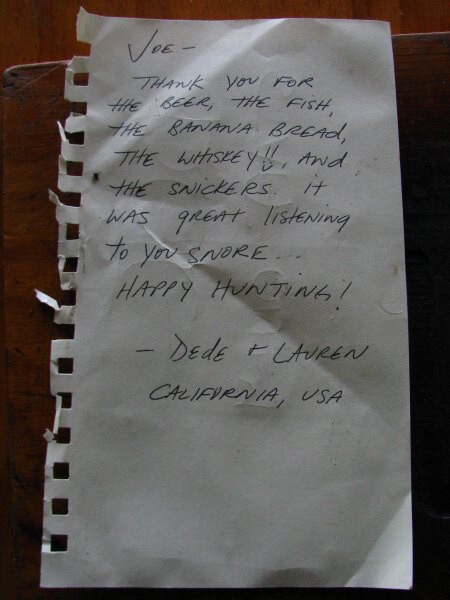 JOE -
THANK YOU FOR
the BEER, the FISH,
the BANANA BREAD,
THE WHISKEY!!, AND
the SNICKERS. it
WAS great listening
to you SNORE...
HAPPY HUNTING!
- DEDE + LAUREN
CALIFORNIA, USA